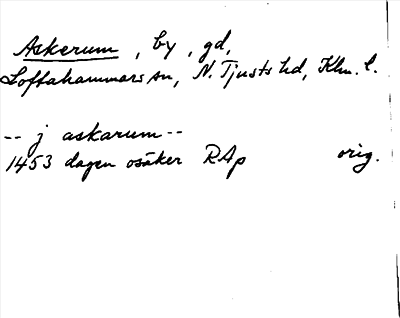 Askerum, by, gd,
Loftahammars sn, N. Tjusts hd, Klm. l.
-- j askarum --
1453 dagen osäker RAp orig.